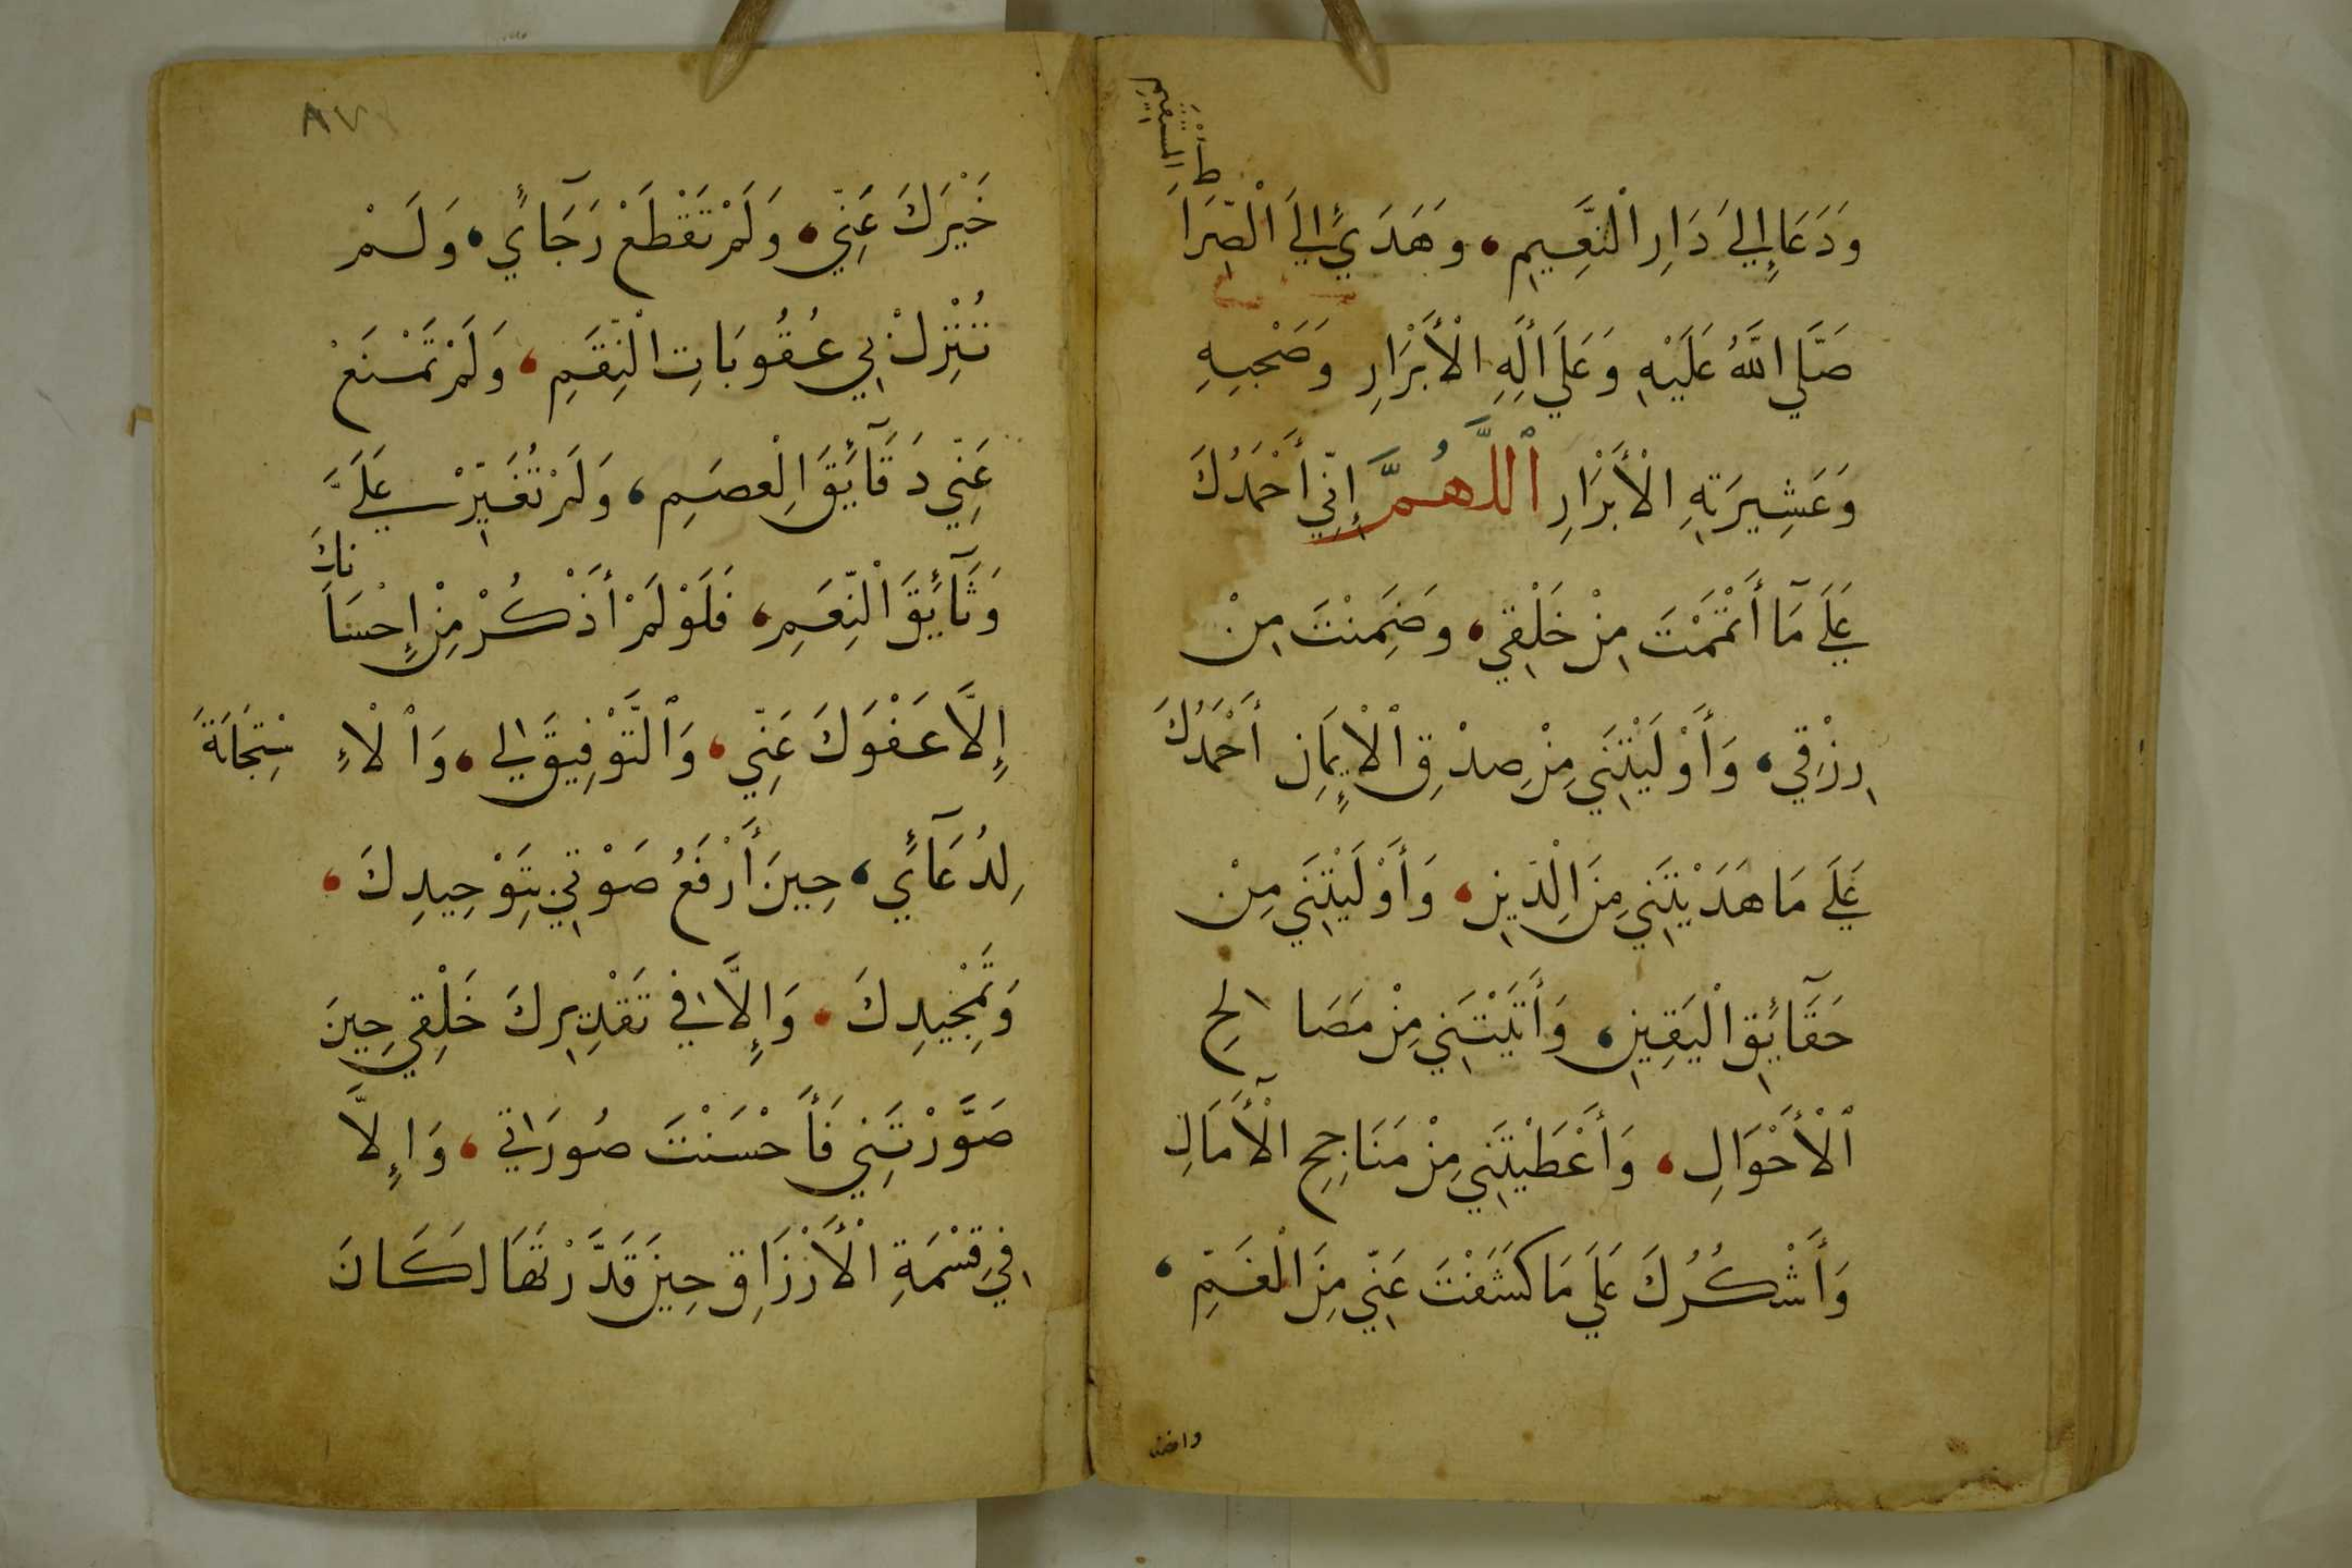 وَدَعَا إِلَيَ دَارِ الْنَّعِيمِ، وَهَدَيٰٓ إِلَيَ الْصِّرَاَ
طِ الْمُسْتَقِيمِ
صَلَّي اللَّهُ عَلَيْهِ وَعَلَي أٰلِهِ الْأَبْرَارِ وَصَحْبِهِ
وَعَشِيرَتِهِ الْأَبْرَارِ ٱللَّهُمَّ إِنِّي أَحْمَدُكَ
عَلَي مَآ أَتْمَمْتَ مِنْ خَلْقِي، وَضَمِنْتَ مِنْ
رِزْقِي، وَأَوْلَيْتَنِي مِنْ صِدْقِ ٱلْإِيمَانِ أَحْمَدُكَ
عَلَي مَا هَدَيْتَنِي مِنَ الْدِّينِ، وَأَوْلَيْتَنِي مِنْ
حَقَآئِقِ الْيَقِينِ، وَأٰتَيْتَنِي مِنْ مَصَالِحِ
ٱلْأَحْوَالِ، وَأَعْطَيْتَنِي مِنْ مَنَاجِحِ الْأٓمَالِ
وَأَشْكُرُكَ عَلَي مَا كَشَفْتَ عَنِّي مِنَ الْغَمِّ،
خَيْرَكَ عَنِّي، وَلَمْ تَقْطَعْ رَجَآئِي، وَلَمْ
تُنْزِلْ بِي عُقُوبَاتِ الْنِّقَمِ، وَلَمْ تَمْنَعْ
عَنِّي دَقَآئِقَ الْعِصَمِ، وَلَمْ تُغَيِّرْ عَلَيَّ
وَثَآئِقَ الْنِّعَمِ، فَلَوْ لَمْ أَذْكُرْ مِنْ إِحْسَانِكَ
إِلَّا عَفْوَكَ عَنِّي، وَٱلتَّوْفِيقَ لِي، وَٱلْاِسْتِجَابَةَ
لِدُعَآئِي، حِينَ أَرْفَعُ صَوْتِي بِتَوْحِيدِكَ،
وَتَمْجِيدِكَ، وَإِلَّا فِي تَقْدِيرِكَ خَلْقِي حِينَ
صَوَّرْتَنِي فَأَحْسَنْتَ صُورَاتِي، وَإِلَّا
فِي قِسْمَةِ الْأَرْزَاقِ حِينَ قَدَّرْتَهَا لَكَانَ